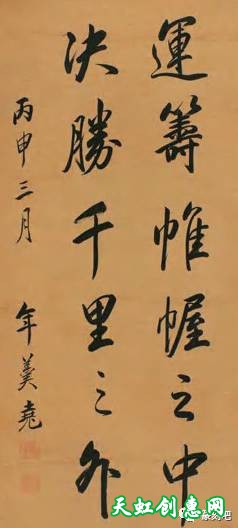 運籌帷幄之中
决勝千里之外
丙申三月
年羹堯
天虹创意网